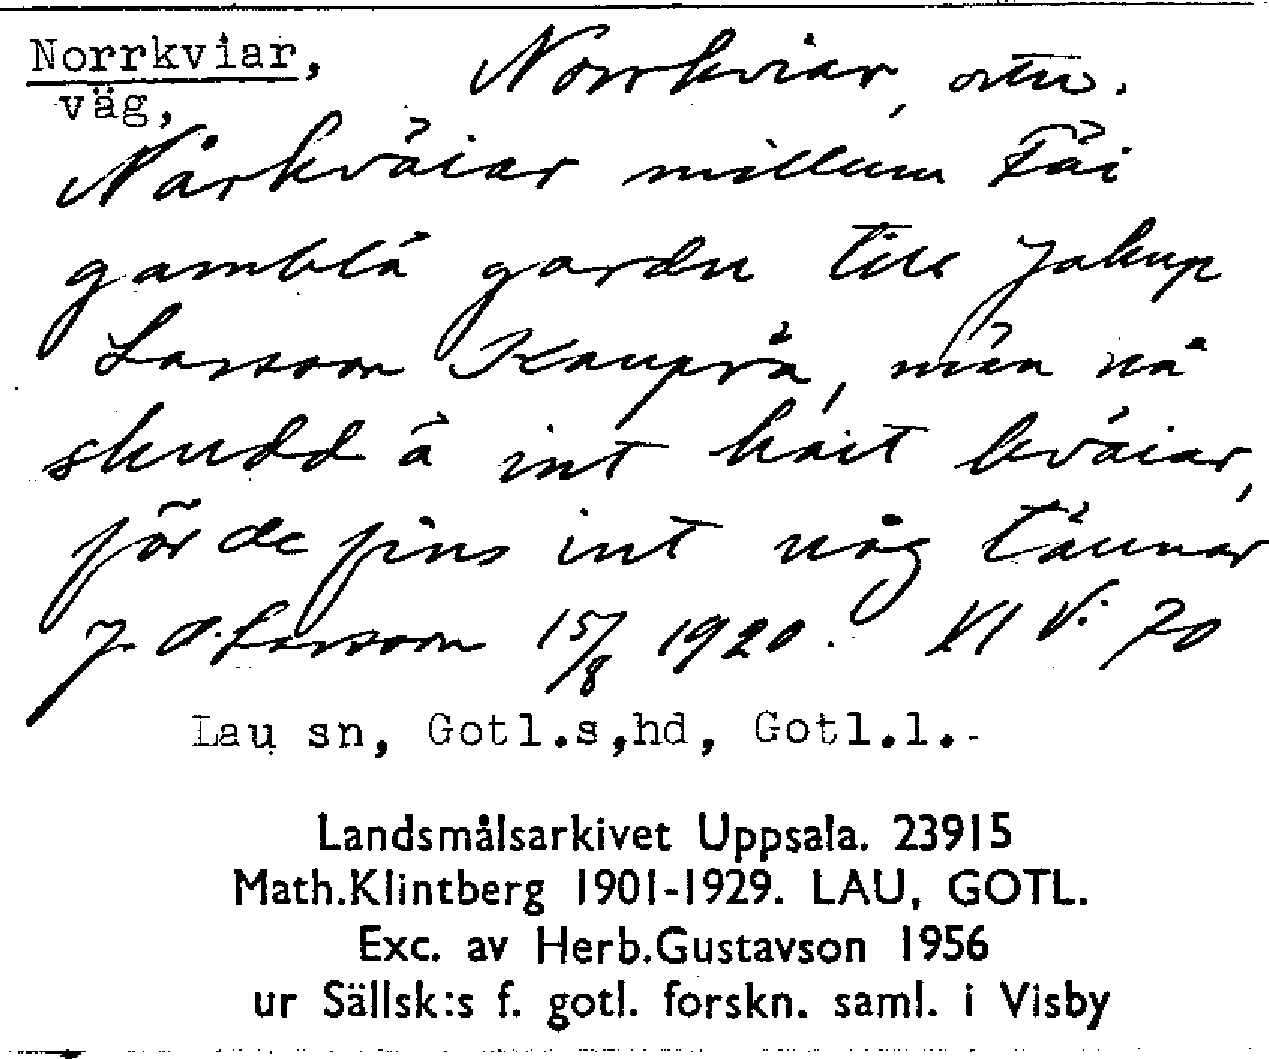 Norrkviar, Norrkviar, ortn.
väg,
Nårkväiar millum Fäi
gamblå gardn till Jakup
Larsson Kauprå, män nå
skudd å int hait kväiar,
för de fins int någ täunar
J. O. Larsson 15/8 1920. XI V: 70
Lau sn, Gotl.s,hd, Gotl.l.-
Landsmålsarkivet Uppsala. 23915
Math.Klintberg 1901-1929. LAU, GOTL.
Exc. av Herb.Gustavson 1956
ur Sällsk:s f. gotl. forskn. saml. i Visby